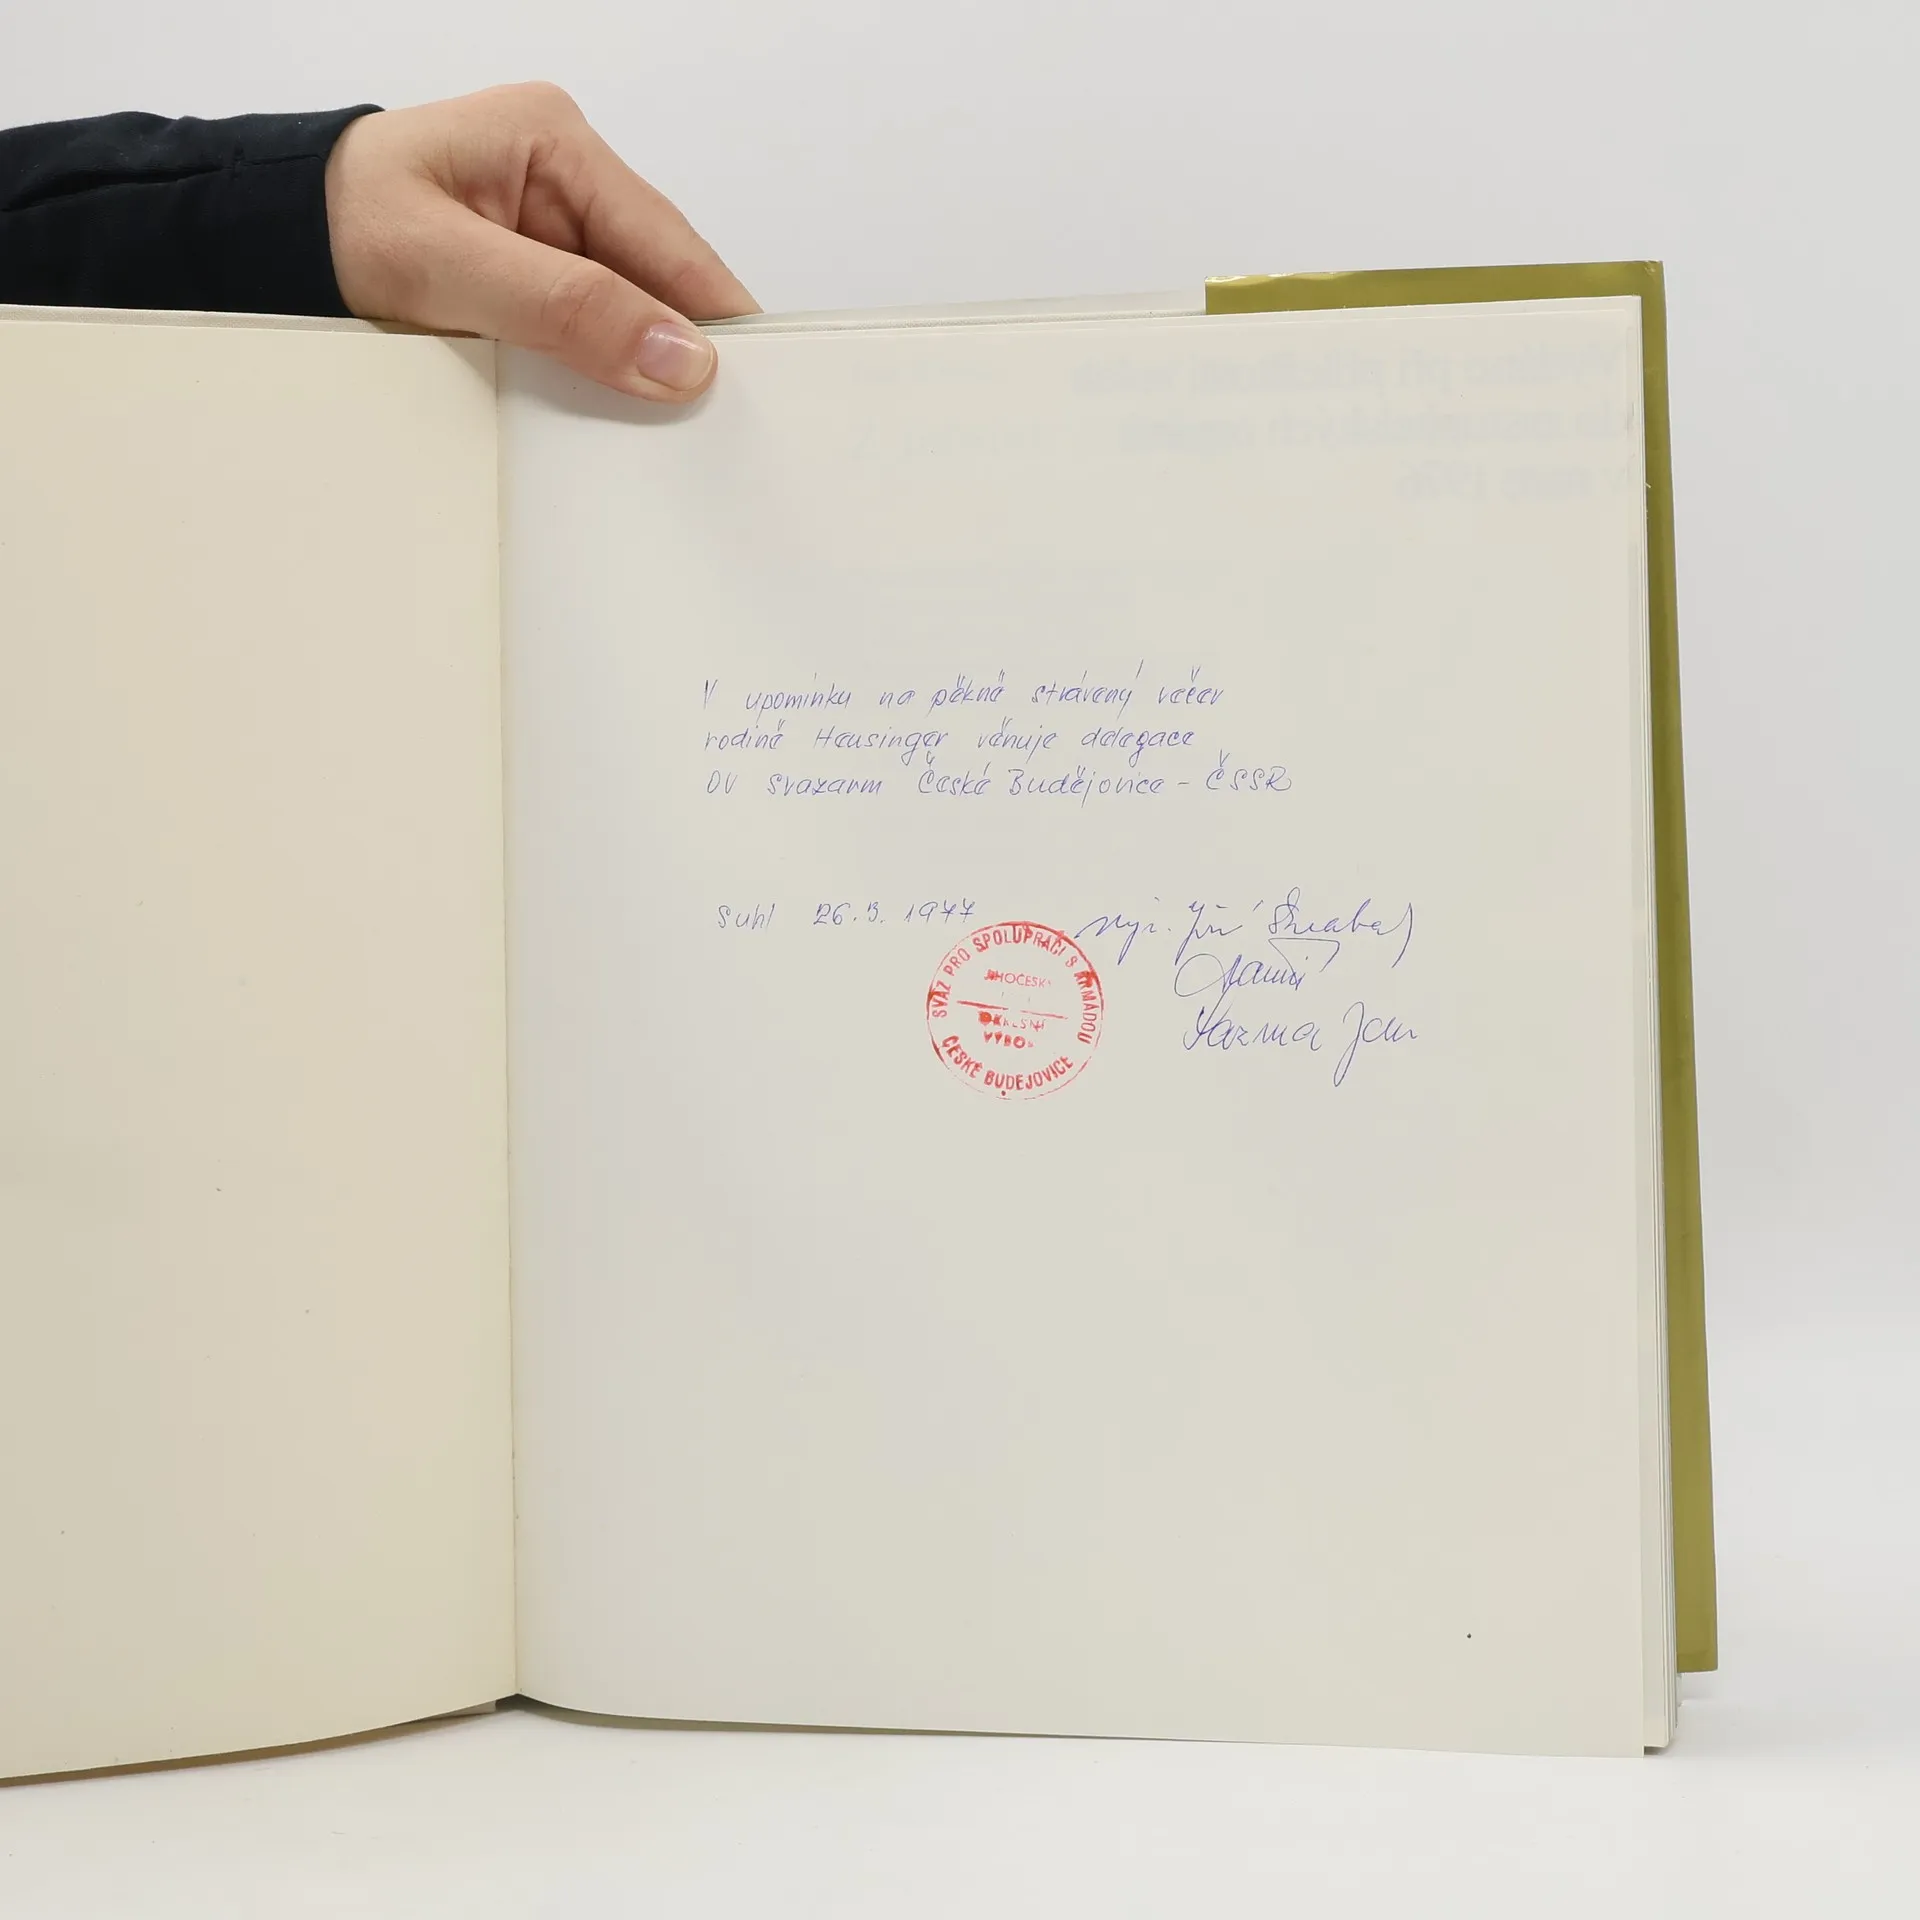 V upomínku na pěkně strávený večer
rodině Heusinger věnuje delegace
OV svazarm České Budějovice - ČSSR
Suhl 26.3.1977
Jiří
Jan
SVAZ PRO SPOLUPRÁCI S ARMÁDOU
JIHOČESK
OKRESNÍ
VÝBO
ČESKÉ BUDĚJOVICE